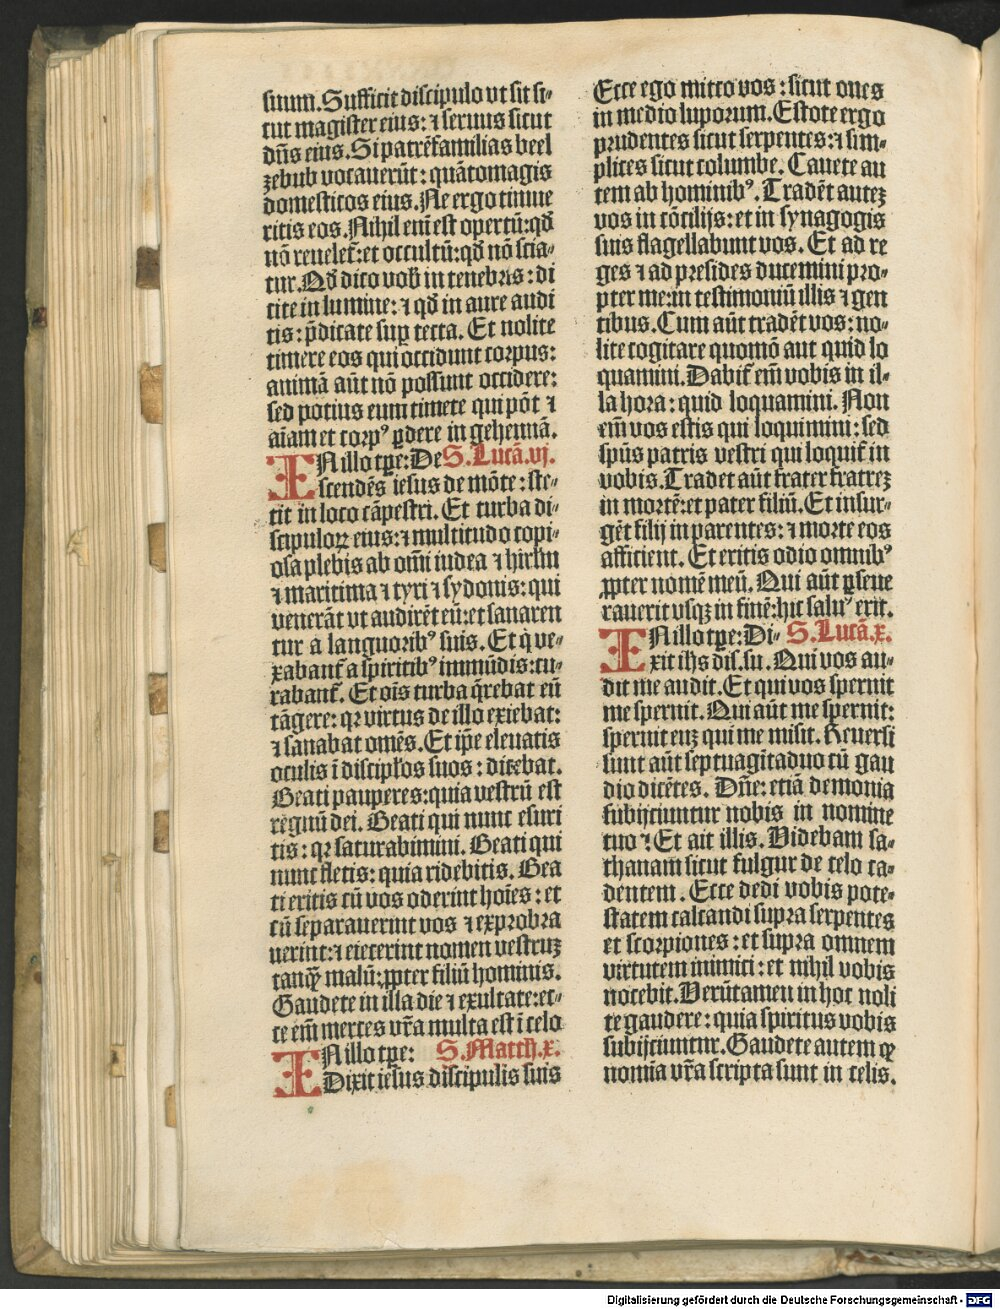 suum. Sufficit discipulo vt sit si⸗
cut magister eius: ⁊ seruus sicut
dn̄s eius. Si patrē familias beel
zebub vocauerūt: quātomagis
domesticos eius. Ne ergo timue
ritis eos. Nihil enī est opertū: qđ
nō reuelet̄: et occultū: qđ nō scia⸗
tur. Qđ dico vob̄ in tenebris: di
cite in lumine: ⁊ qđ in aure audi
tis: p̄dicate suꝑ tecta. Et nolite
timere eos qui occidunt corpus:
animā aūt nō possunt occidere:
sed potius eum timete qui pōt ⁊
aīam et corpꝰ ꝑdere in gehennā.
IN illo tꝑe: De S. Lucā. vj.
scendēs iesus de mōte: ste⸗
tit in loco cāpestri. Et turba di⸗
scipuloꝝ eius: ⁊ multitudo copi⸗
osa plebis ab om̄i iudea ⁊ hirlm̄
⁊ maritima ⁊ tyri ⁊ sydonis: qui
venerāt vt audirēt eū: et sanaren
tur a languoribꝰ suis. Et q̇ ve⸗
xabant̄ a spiritibꝰ immūdis: cu⸗
rabant̄. Et oīs turba q̄rebat eū
tāgere: qꝛ virtus de illo exiebat:
⁊ sanabat omēs. Et ip̄e eleuatis
oculis ī discipl̓os suos: dicebat.
Beati pauperes: quia vestrū est
regnū dei. Beati qui nunc esuri
tis: qꝛ saturabimini. Beati qui
nunc fletis: quia ridebitis. Bea
ti eritis cū vos oderint hoīes: et
cū separauerint vos ⁊ exprobra
uerint: ⁊ eiecerint nomen vestruꝫ
tanqȝ malū: ꝓpter filiū hominis.
Gaudete in illa die ⁊ exultate: ec⸗
ce em̄ merces vr̄a multa est ī celo
IN illo tꝑe: S. Matth. x.
Dixit iesus discipulis suis
Ecce ego mitto vos: sicut oues
in medio luporum. Estote ergo
prudentes sicut serpentes: ⁊ sim⸗
plices sicut columbe. Cauete au
tem ab hominibꝰ. Tradēt auteꝫ
vos in cōcilijs: et in synagogis
suis flagellabunt vos. Et ad re
ges ⁊ ad presides ducemini pro⸗
pter me: in testimoniū illis ⁊ gen
tibus. Cum aūt tradēt vos: no⸗
lite cogitare quomō aut quid lo
quamini. Dabit̄ em̄ vobis in il⸗
la hora: quid loquamini. Non
em̄ vos estis qui loquimini: sed
spūs patris vestri qui loquit̄ in
vobis. Tradet aūt frater fratreꝫ
in mortē: et pater filiū. Et insur⸗
gēt filij in parentes: ⁊ morte eos
afficient. Et eritis odio omnibꝰ
ꝓpter nomē meū. Qui aūt ꝑseue
rauerit vsqꝫ in finē: hic saluꝰ erit.
IN illo tꝑe: Di⸗ S. Lucā. x.
xit ih̄s dis. su. Qui vos au⸗
dit me audit. Et qui vos spernit
me spernit. Qui aūt me spernit:
spernit euꝫ qui me misit. Reuersi
sunt aūt septuagītaduo cū gau
dio dicētes. Dn̄e: etiā demonia
subijciuntur nobis in nomine
tuo ⁊ Et ait illis. Videbam sa⸗
thanam sicut fulgur de celo ca⸗
dentem. Ecce dedi vobis pote⸗
statem calcandi supra serpentes
et scorpiones: et supra omnem
virtutem inimici: et nihil vobis
nocebit. Verūtamen in hoc noli
te gaudere: quia spiritus vobis
subijciuntur. Gaudete autem qȝ
nomīa vr̄a scripta sunt in celis.
Digitalisierung gefördert durch die Deutsche Forschungsgemeinschaft - DFG